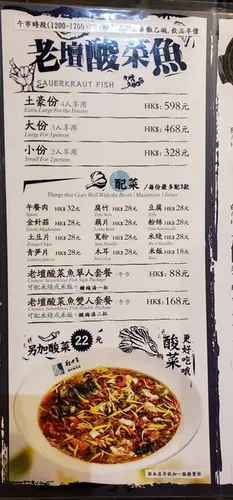 午市時段(1200-1700)
飯乙碗,飲品半價
老壇酸菜魚
SAUERKRAUT FISH
土豪份 4人享用 HK$: 598元
Extra Large For the Feaster
大份 3人享用 HK$: 468元
Large For 3 person
小份 2人享用 HK$: 328元
Small For 2 person
配菜 /每份最多配3款
Things that Goes Well With the Broth / Maximum 3 Items
午餐肉 HK$ 32元 腐竹 HK$ 28元 豆腐 HK$ 28元
金針菇 HK$ 28元 藕片 HK$ 28元 粉絲 HK$ 28元
土豆片 HK$ 28元 寬粉 HK$ 28元 米線 HK$ 28元
青笋片 HK$ 28元 木耳 HK$ 28元 米飯 HK$ 18元
老壇酸菜魚單人套餐/午市 HK$: 88元
可配米線或米飯+酸梅湯一杯
老壇酸菜魚雙人套餐/午市 HK$: 168元
可配米線或米飯+酸梅湯二杯
另加酸菜 22元
酸菜
更好吃哦!